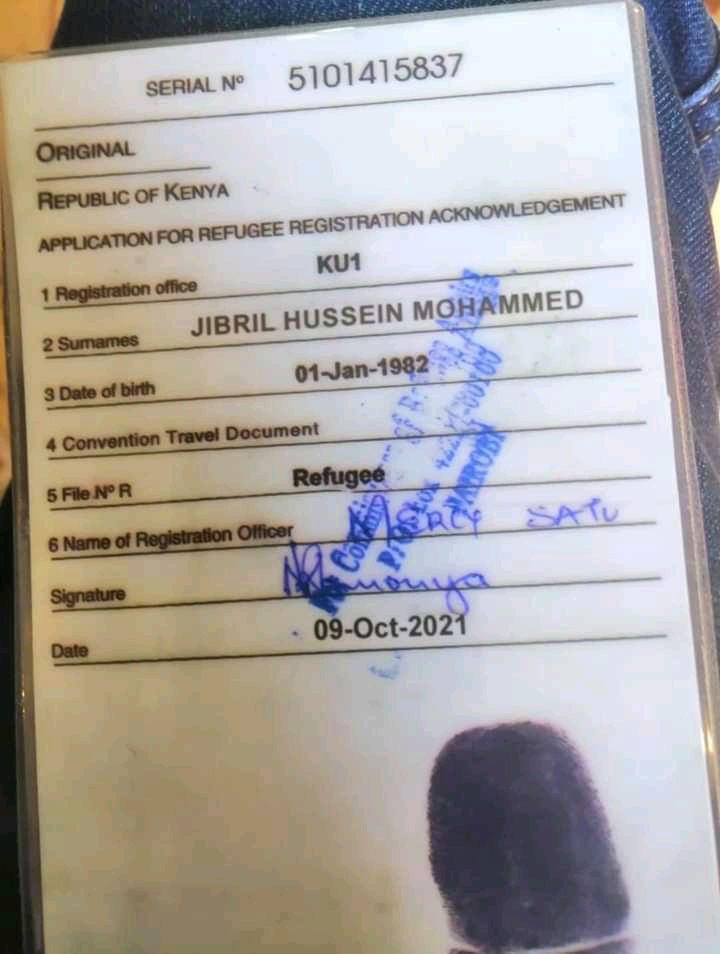 SERIAL Nº 5101415837
ORIGINAL
REPUBLIC OF KENYA
APPLICATION FOR REFUGEE REGISTRATION ACKNOWLEDGEMENT
1 Registration office KU1
2 Surnames JIBRIL HUSSEIN MOHAMMED
3 Date of birth 01-Jan-1982
4 Convention Travel Document
5 File Nº R Refugee
6 Name of Registration Officer MERCY SATU
Signature
Date 09-Oct-2021
of
NAIROBI